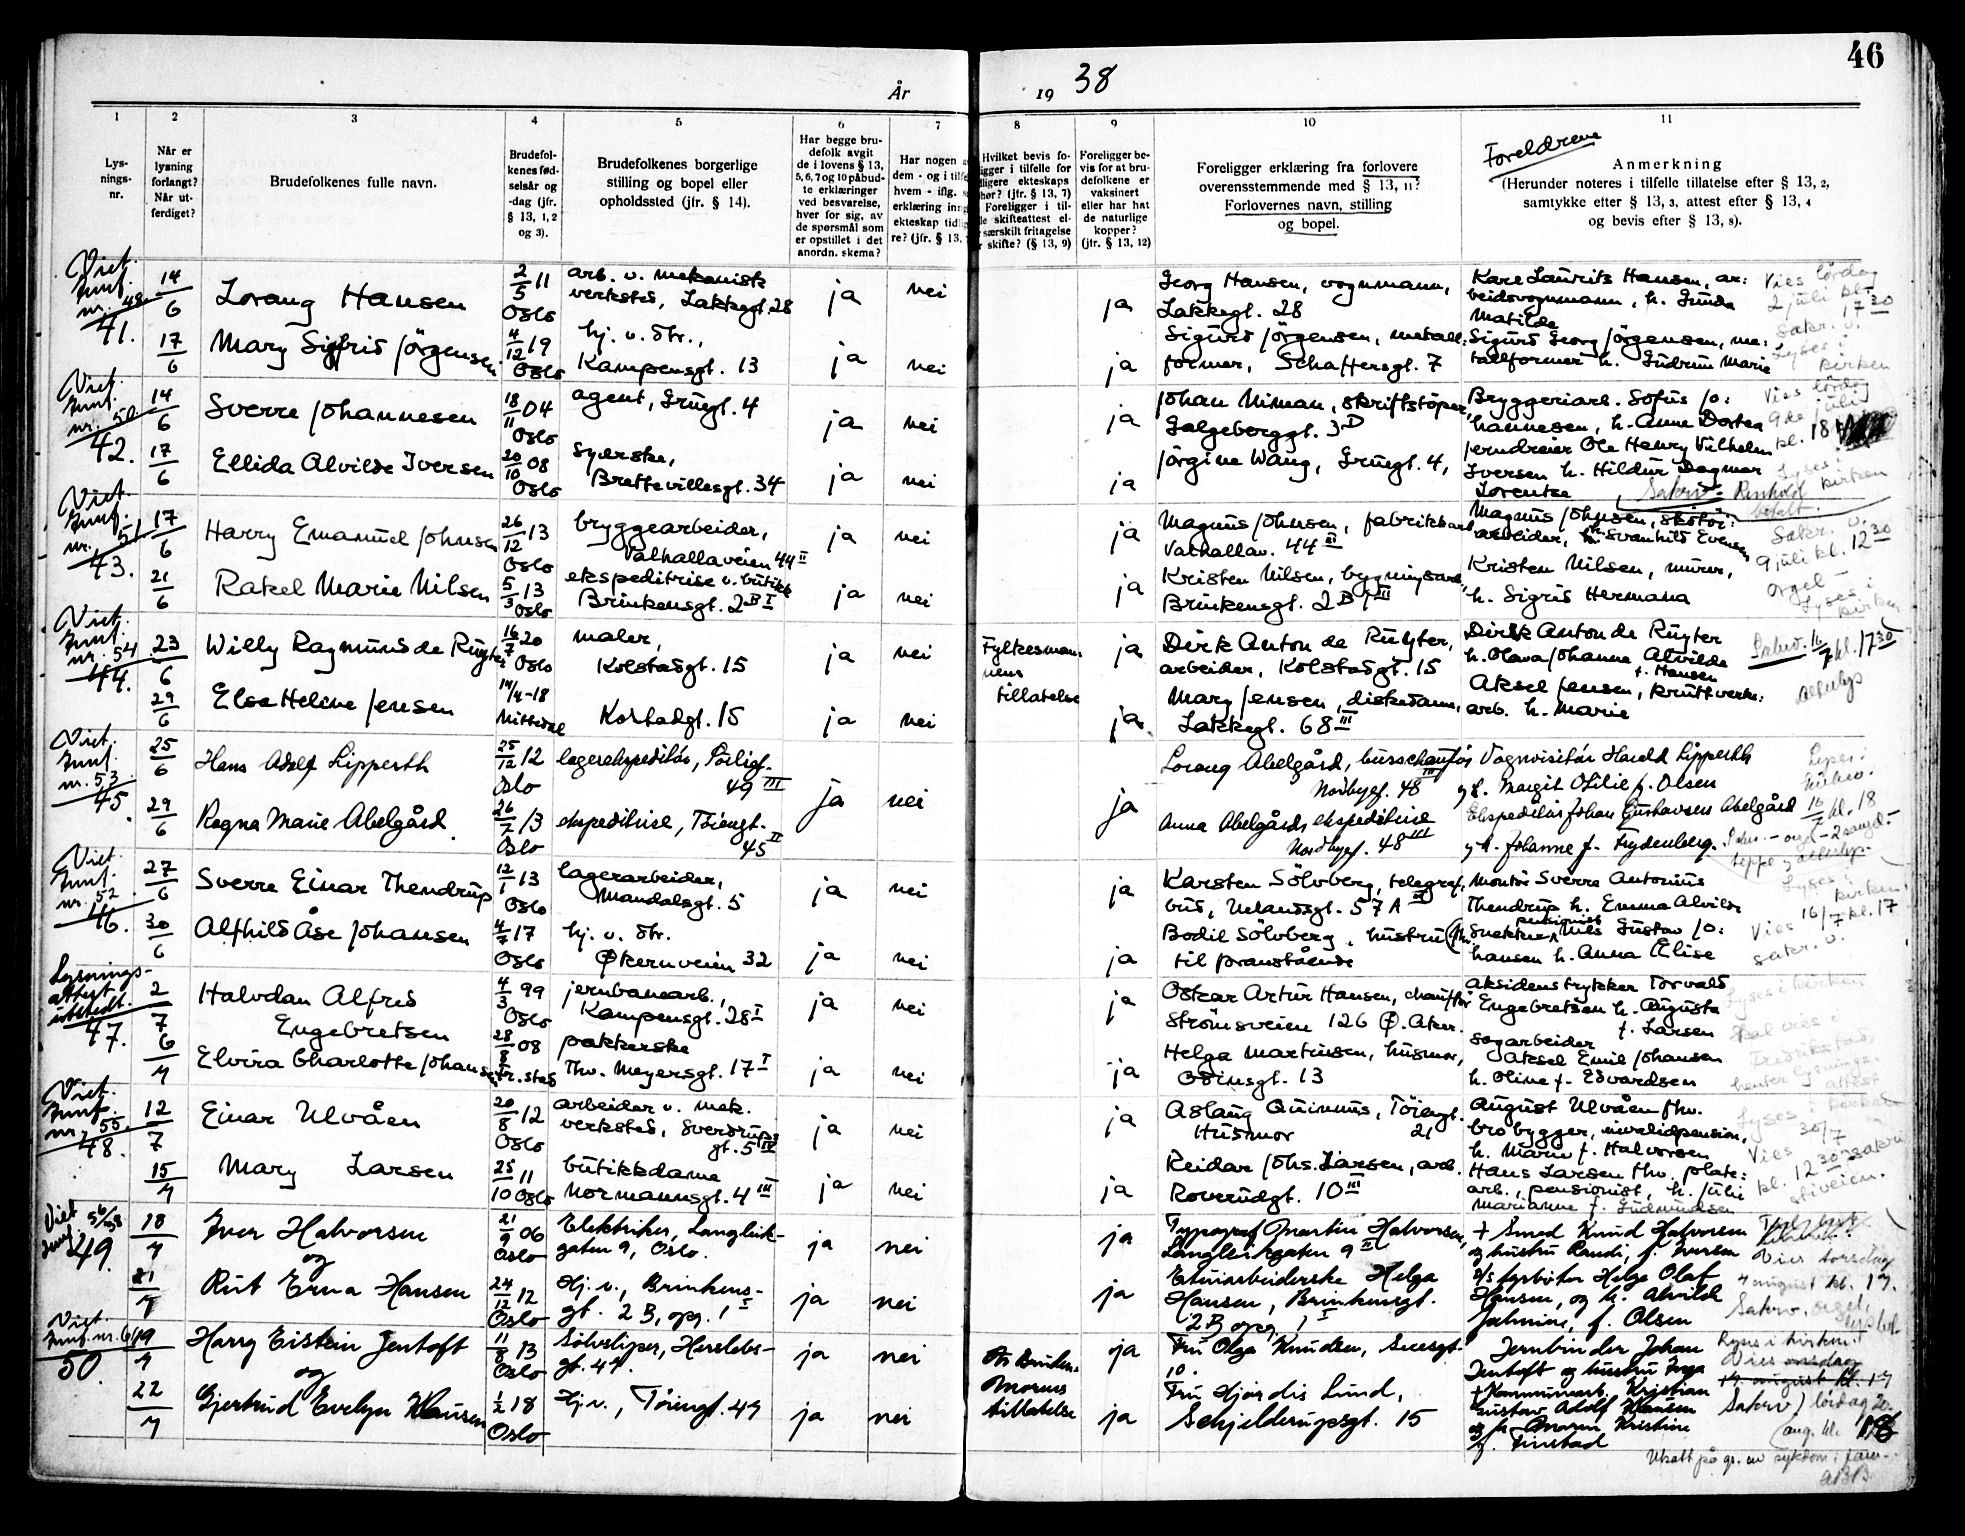 46
År 19 38
1 2 3 4 5 6 7 8 9 10 11
Lys-
nings-
nr.
Når er
lysning
forlangt?
Når ut-
ferdiget?
Brudefolkenes fulle navn.
Brudefol-
kenes fød-
selsår og
-dag (jfr.
§ 13, 1, 2
og 3).
Brudefolkenes borgerlige
stilling og bopel eller
opholdssted (jfr. § 14).
Har begge bru-
defolk avgit
de i lovens § 13,
5, 6, 7 og 10 påbud-
te erklæringer
ved besvarelse,
hver for sig, av
de spørsmål som
er opstillet i det
anordn. skema?
Har nogen
dem - og i tilf
hvem - iflg.
erklæring inng
ekteskap tidl
re? (jfr. § 13,
Hvilket bevis fo-
igger i tilfelle for
dligere ekteskaps
hør? (jfr. § 13, 7)
Foreligger i til-
le skifteattest el-
særskilt fritagelse
skifte? (§ 13, 9)
Foreligger be-
vis for at bru-
defolkene er
vaksinert
eller har hat
de naturlige
kopper?
(jfr. § 13, 12)
Foreligger erklæring fra forlovere
overensstemmende med § 13, 11?
Forlovernes navn, stilling
og bopel.
Foreldrene
Anmerkning
(Herunder noteres i tilfelle tillatelse efter § 13, 2,
samtykke efter § 13, 3, attest efter § 13, 4
og bevis efter § 13, 8).
Viet.
Innf.
nr. 48.
41.
14/6
Lorang Hansen
2/5 11
Oslo
arb. v. mekanisk
verksted, Lakkegt. 28
ja
nei
ja
Georg Hansen, vognmann,
Lakkegt. 28
Kare Laurits Hansen, ar:
beidsvognmann, h. Gunda
Matilde
Vies lørdag
2 juli kl.
17 30
Sakr. v.
Lyses i
kirken
17/6
Mary Sigfrid Jörgensen
4/12 19
Oslo
hj. v. str.,
Kampensgt. 13
ja
nei
ja
Sigurd Jörgensen, metall:
former, Schaffersgt. 7
Sigurd Georg Jörgensen, me:
tallformer h. Gudrun Marie
Viet.
Innf.
nr. 50
42.
14/6
Sverre Johannesen
18/11 04
Oslo
agent, Gruegt. 4
ja
nei
ja
Johan Niman, skriftstöper,
Galgeberggt. 3D
Bryggeriarb. Sofus Jo:
hannesen, h. Anne Dortea
Vies lørdag
9de juli
kl. 18
17/6
Ellida Alvilde Iversen
20/10 08
Oslo
Syerske,
Brettevillesgt. 34
ja
nei
ja
Jörgine Wang, Gruegt. 4,
Jerndreier Ole Henry Vilhelm
Iversen h. Hildur Dagmar
Lorentze
Lyses i
kirken
Viet.
Innf.
nr. 51
43.
17/6
Harry Emanuel Johnsen
26/12 13
Oslo
bryggearbeider,
Valhallaveien 44 II
ja
nei
ja
Magnus Johnsen, fabrikkarb
Valhallav. 44 III
Magnus Johnsen, skotöi:
arbeider, h. Svanhild Evensen
Sakr. v.
9 juli kl. 12 30
orgel -
Lyses i
kirken
21/6
Rakel Marie Nilsen
5/3 13
Oslo
ekspeditrise v. butikk
Brinkensgt. 2B I
ja
nei
ja
Kristen Nilsen, bygningsarb,
Brinkensgt. 2 B III
Kristen Nilsen, murer,
h. Sigrid Hermana
Viet.
Innf.
nr. 54.
44.
23/6
Willy Raymund de Ruyter
16/7 20
Oslo
maler,
Kolstadgt. 15
ja
nei
Fylkesman-
nens
tillatelse
ja
Dirk Anton de Ruyter,
arbeider, Kolstadgt. 15
Dirk Anton de Ruyter
h. Olava Johanne Alvilde
f. Hansen
Sakrv. 16/7 kl. 17 30
29/6
Else Helene Jensen
14/4-18
Nittedal
Kolstadgt. 15
ja
nei
ja
Mary Jensen, diskedame,
Lakkegt. 68 III
Aksel Jensen, kruttverks:
arb. h. Marie
Viet.
Innf.
nr. 53
45.
25/6
Hans Adolf Lipperth
25/12 12
Oslo
lagerekspeditör,
49 III
ja
nei
ja
Lorang Abelgård, busschauför
Nordbygt. 48 III
Vognvisitör Harald Lipperth
og h. Margit Otilie f. Olsen
29/6
Ragna Marie Abelgård
26/7 13
Oslo
ekspeditrise, Töiengt.
45 II
Anna Abelgård, ekspeditrise
Nordbygt. 48 III
Ekspeditör Johan Gustavsen Abelgård
og h. Johanne f. Frydenberg.
16/7 kl. 18
Viet.
Innf.
nr. 52
46.
27/6
Sverre Einar Thendrup
12/1 13
Oslo
lagerarbeider,
Mandalsgt. 5
ja
nei
ja
Karsten Sölvberg, telegraf,
bud, Uelandsgt. 57 A III
Montör Sverre Antonius
Thendrup h. Emma Alvilde
Lyses i
kirken.
Vies 16/7 kl. 17
sakr. v.
30/6
Alfhild Åse Johansen
4/7 17
Oslo
hj. v. str.
Økernveien 32
ja
nei
ja
Bodil Sölvberg, hustru
til pranstående
Snekker, pensionist Nils Gustav Jo:
hansen h. Anna Elise
Lysnings-
attest
utstedt.
47.
2/7
Halvdan Alfred
Engebretsen
4/3 99
Oslo
jernbanearb.,
Kampensgt. 28 I
ja
nei
ja
Oskar Artur Hansen, chauffør
Strömsveien 126 Ø. Aker.
Aksidenstrykker Torvald
Engebretsen h. Augusta
f. Larsen
Lyses i kirken
Skal vies i
Fredrikstad,
henter lysnings-
attest
6/7
Elvira Charlotte Johansen
28/8 08
Fr. stad
pakkerske
Thv. Meyersgt. 17 I
ja
nei
ja
Helga Martinsen, husmor,
Odinsgt. 13
sagarbeider
Aksel Emil Johansen
h. Oline f. Edvardsen
Viet.
Innf.
nr. 55.
48.
12/7
Einar Ulvåen
20/8 12
Oslo
arbeider v. mek.
verksted, Sverdrups
gt. 5 IV
ja
nei
ja
Aslaug Quinnus, Töiengt.
Husmor 21
August Ulvåen fhv.
brobygger, invalidpension,
h. Marie f. Halvorsen
Vies 30/7
kl. 12 30
15/7
Mary Larsen
25/10 11
Oslo
butikkdame
Normannsgt. 4 III
ja
nei
ja
Reidar Johs. Larsen, arb.
Roverudgt. 10 III
Hans Larsen fhv. plate:
arb., pensionist, h. Julie
Marianne f. Gudmundsen
Viet
Innf. 56/38
49.
18/7
Iver Halvorsen
og
21/9 06
Oslo
Elektriker, Langleik-
gaten 9, Oslo.
ja
nei
ja
Typograf Martin Halvorsen,
Langleikgaten 9 II
+ Smed Knud Halvorsen
og hustru Randi, f. Iversen
Vies torsdag
4 august kl. 17.
Sakrv., orgel,
21/7
Rut Erna Hansen
24/12 12
Oslo
Hj. v., Brinkens-
gt. 2 B, opg. 1 I
ja
nei
ja
Etuiarbeiderske Helga
Hansen, Brinkensgt.
2 B opg. 1 I
Fyrböter Helge Olaf
Hansen, og h. Alvilde
f. Olsen
Viet.
Innf. nr. 61
50.
19/7
Harry Eistein Jentoft
og
11/8 13
Oslo
Sölvsliper, Herslebs-
gt. 47.
ja
nei
Av bruden.
Morens
tillatelse
ja
Fru Olga Knudsen,
10.
Jernbinder Johan
Jentoft og hustru Inga
Lyses i kirken!
Vies onsdag
17. august kl. 17
Sakrv) lördag 20.
aug. kl. 18
22/7
Gjertrud Evelyn Klausen
1/2 18
Oslo
Hj. v., Töiengt. 47
ja
nei
ja
Fru Hjördis Lund,
Schjelderupsgt. 15
+ Kommunearb. Kristian
Gustav Adolf Klausen
og h. Maren Kristine
f. Finstad
Utsatt på gr. av sykdom i fam.